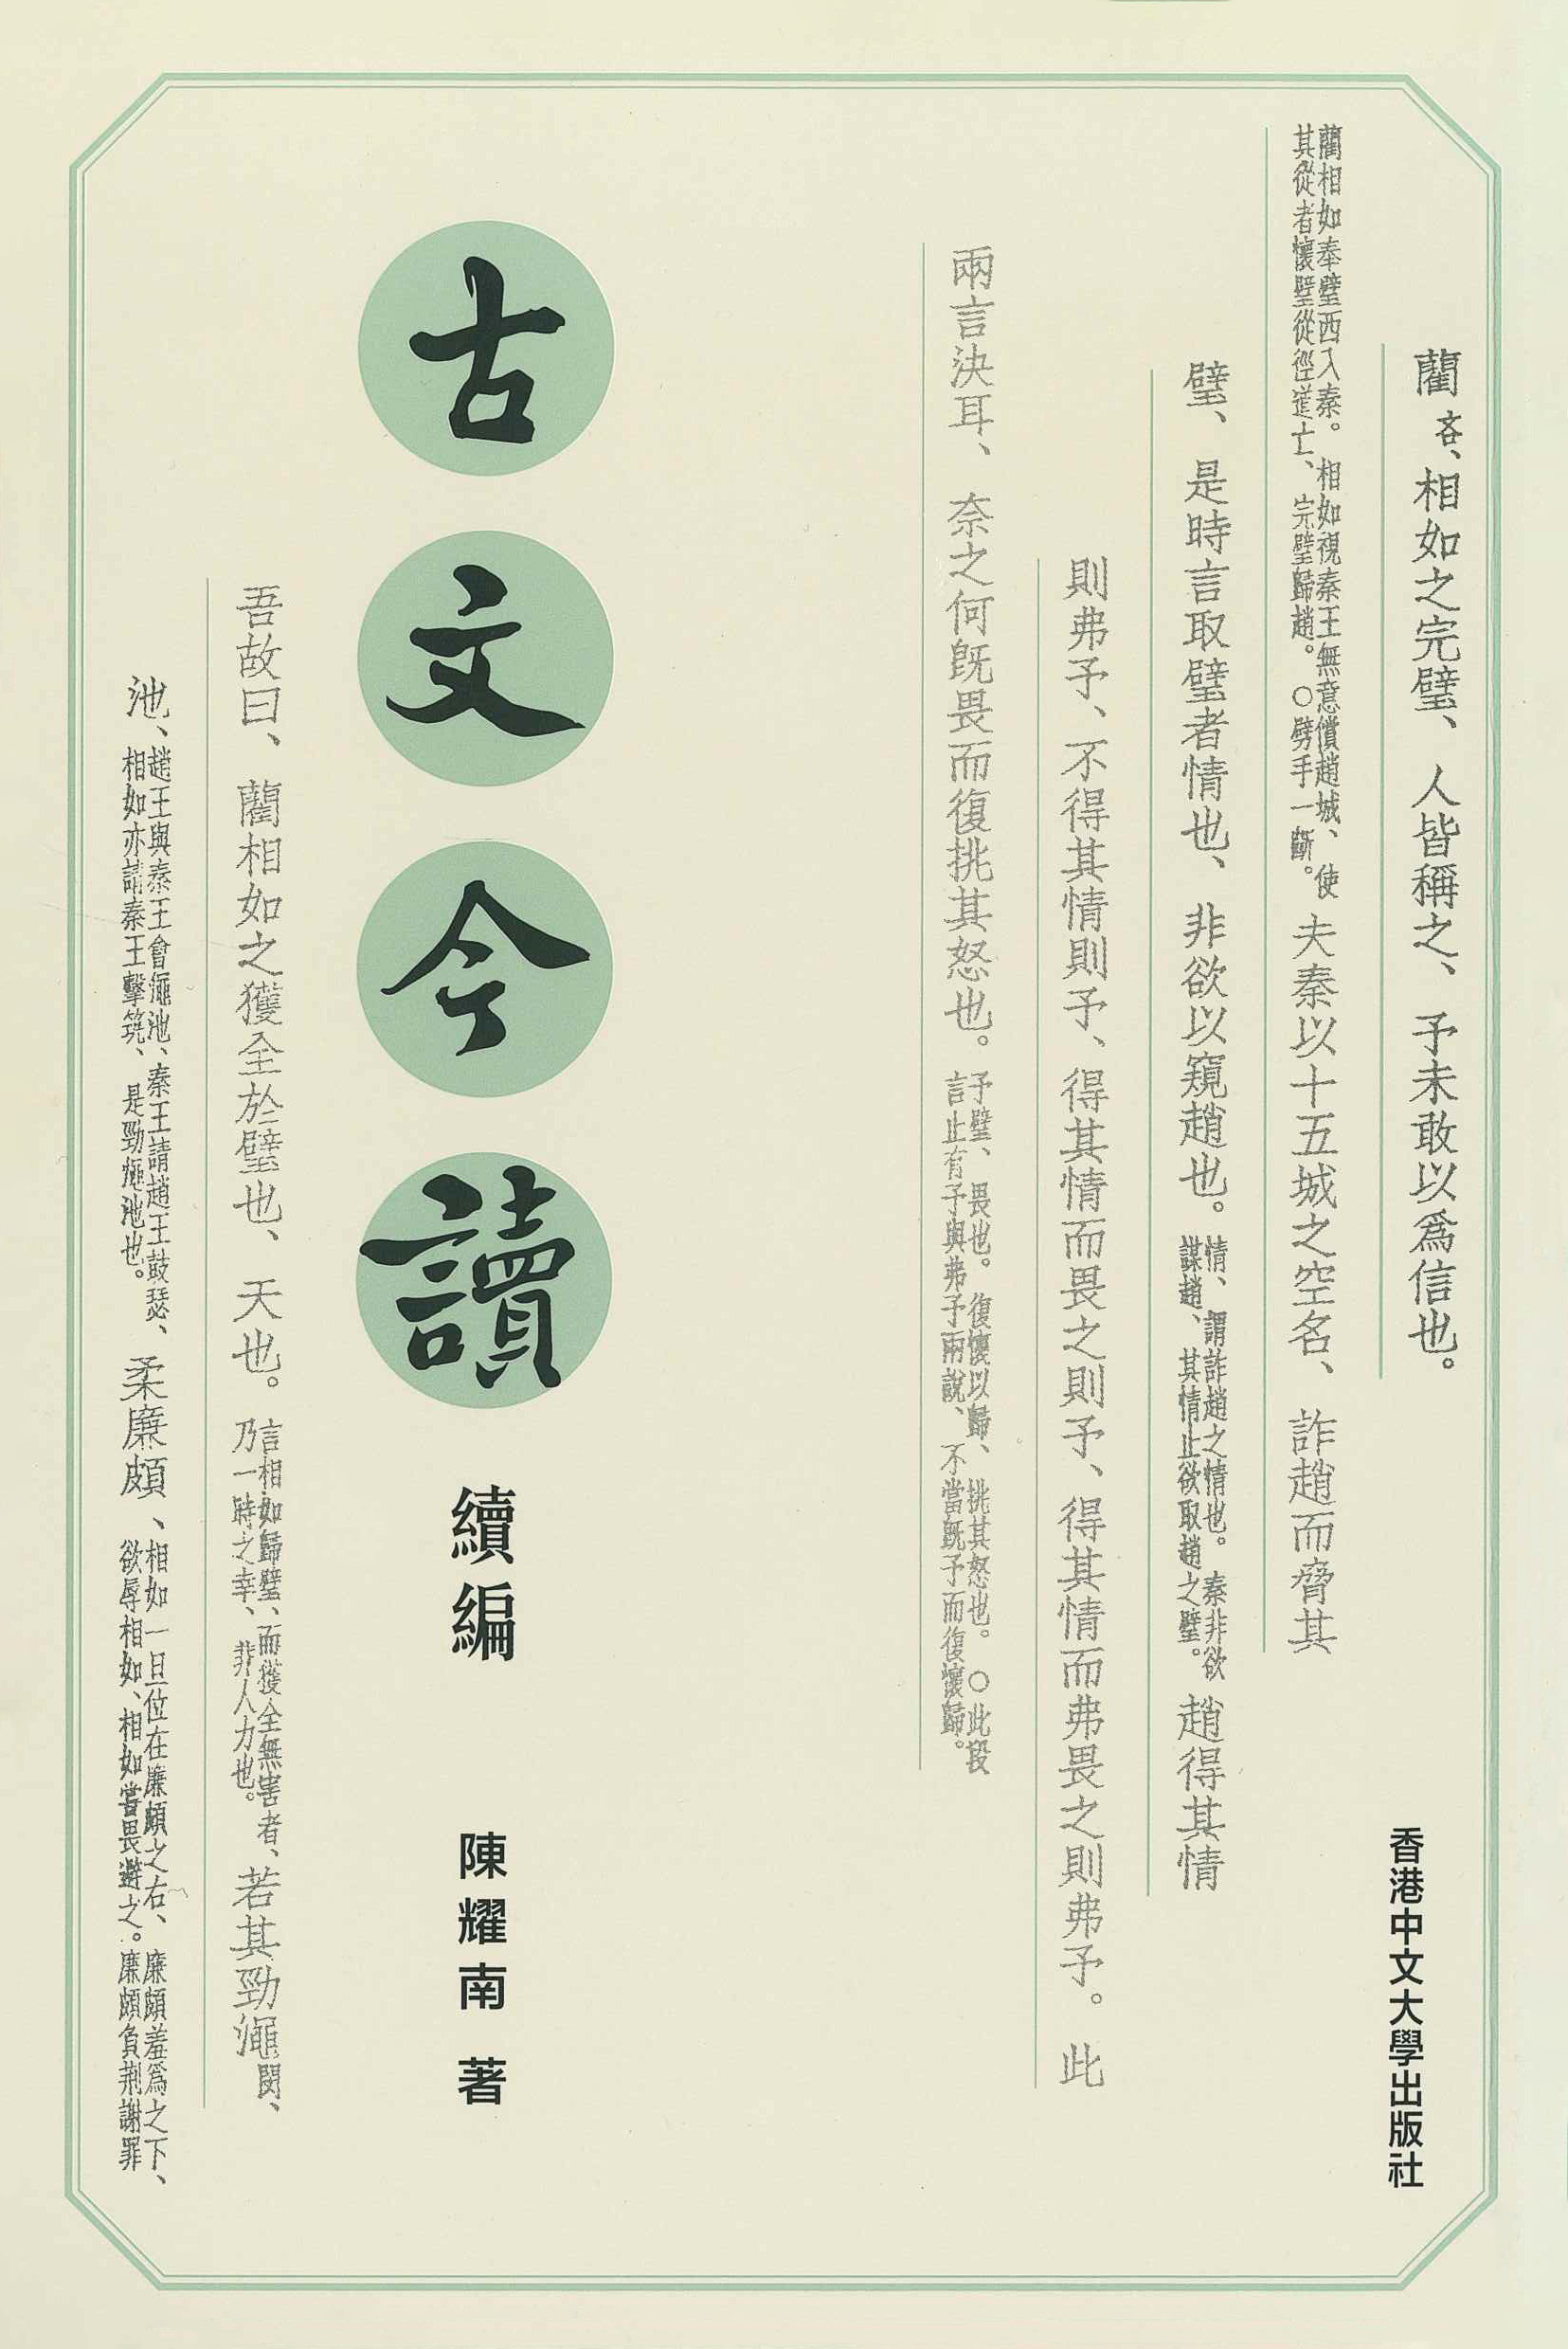 藺吝、相如之完璧、人皆稱之、予未敢以爲信也。
藺相如奉璧西入秦。相如視秦王無意償趙城、使
其從者懷璧從徑道亡、完璧歸趙。○劈手一斷。
夫秦以十五城之空名、詐趙而脅其
璧、是時言取璧者情也、非欲以窺趙也。
情、謂詐趙之情也。秦非欲
謀趙、其情止欲取趙之璧。
趙得其情
則弗予、不得其情則予、得其情而畏之則予、得其情而弗畏之則弗予。此
兩言決耳、奈之何既畏而復挑其怒也。
予璧、畏也。復懷以歸、挑其怒也。○此段
言止有予與弗予兩說、不當既予而復懷歸。
古文今讀
續編
陳耀南 著
吾故曰、藺相如之獲全於璧也、天也。
言相如歸璧、而獲全無害者、
乃一時之幸、非人力也。
若其勁澠閔、
池、
趙王與秦王會澠池、秦王請趙王鼓瑟、
相如亦請秦王擊筑、是勁澠池也。
柔廉頗、
相如一旦位在廉頗之右、廉頗羞爲之下、
欲辱相如、相如嘗畏避之。廉頗負荆謝罪
香港中文大學出版社